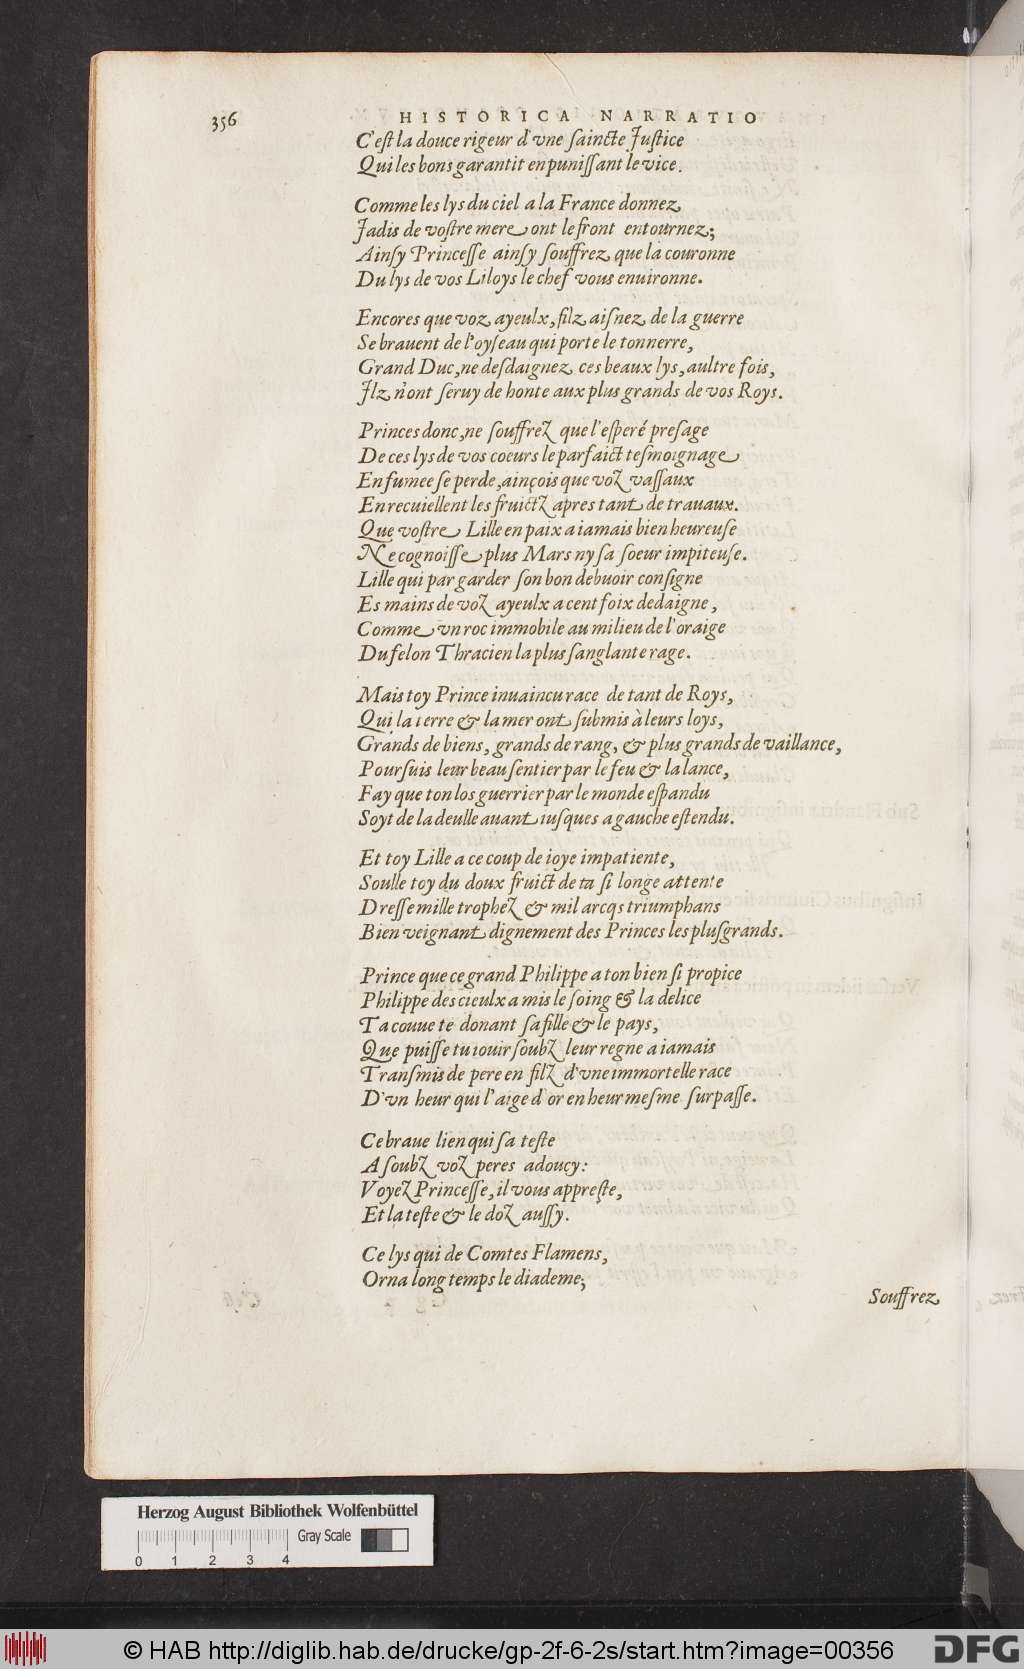 356
HISTORICA NARRATIO
C'eſt la douce rigeur d'vne ſaincte Juſtice
Qui les bons garantit en puniſſant le vice.
Comme les lys du ciel a la France donnez
Jadis de voſtre mere ont le front entournez;
Ainſy Princeſſe ainſy ſouffrez que la couronne
Du lys de vos Liloys le chef vous enuironne.
Encores que voz ayeulx, filz aiſnez de la guerre
Se brauent de l'oyſeau qui porte le tonnerre,
Grand Duc, ne deſdaignez ces beaux lys, aultre fois,
Jlz n'ont ſeruy de honte aux plus grands de vos Roys.
Princes donc, ne ſouffrez que l'eſperé preſage
De ces lys de vos coeurs le parfaict teſmoignage
En fumee ſe perde, ainçois que voz vaſſaux
En recuiellent les fruictz apres tant de trauaux.
Que voſtre Lille en paix a iamais bien heureuſe
Ne cognoiſſe plus Mars ny ſa ſoeur impiteuſe.
Lille qui par garder ſon bon debuoir conſigne
Es mains de voz ayeulx a cent foix dedaigne,
Comme vn roc immobile au milieu de l'oraige
Du felon Thracien la plus ſanglante rage.
Mais toy Prince inuaincu race de tant de Roys,
Qui la terre & la mer ont ſubmis à leurs loys,
Grands de biens, grands de rang, & plus grands de vaillance,
Pourſuis leur beau ſentier par le feu & la lance,
Fay que ton los guerrier par le monde eſpandu
Soyt de la deulle auant iuſques a gauche eſtendu.
Et toy Lille a ce coup de ioye impatiente,
Soulle toy du doux fruict de ta ſi longe attente
Dreſſe mille trophez & mil arcqs triumphans
Bien veignant dignement des Princes les pluſgrands.
Prince que ce grand Philippe a ton bien ſi propice
Philippe des cieulx a mis le ſoing & la delice
Ta couue te donant ſa fille & le pays,
Que puiſſe tu iouir ſoubz leur regne a iamais
Tranſmis de pere en filz d'vne immortelle race
D'vn heur qui l'aige d'or en heur meſme ſurpaſſe.
Ce braue lien qui ſa teſte
A ſoubz voz peres adoucy:
Voyez Princeſſe, il vous appreſte,
Et la teſte & le doz auſſy.
Ce lys qui de Comtes Flamens,
Orna long temps le diademe;
Souffrez
Herzog August Bibliothek Wolfenbüttel
Gray Scale
0 1 2 3 4
© HAB http://diglib.hab.de/drucke/gp-2f-6-2s/start.htm?image=00356
DFG